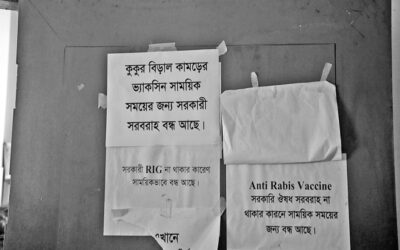 কুকুর বিড়াল কামড়ের
ভ্যাকসিন সাময়িক
সময়ের জন্য সরকারী
সরবরাহ বন্ধ আছে।
সরকারী RIG না থাকার কারণে
সাময়িকভাবে বন্ধ আছে।
Anti Rabis Vaccine
সরকারি ঔষধ সরবরাহ না
থাকার কারনে সাময়িক সময়ের
বন্ধ আছে।